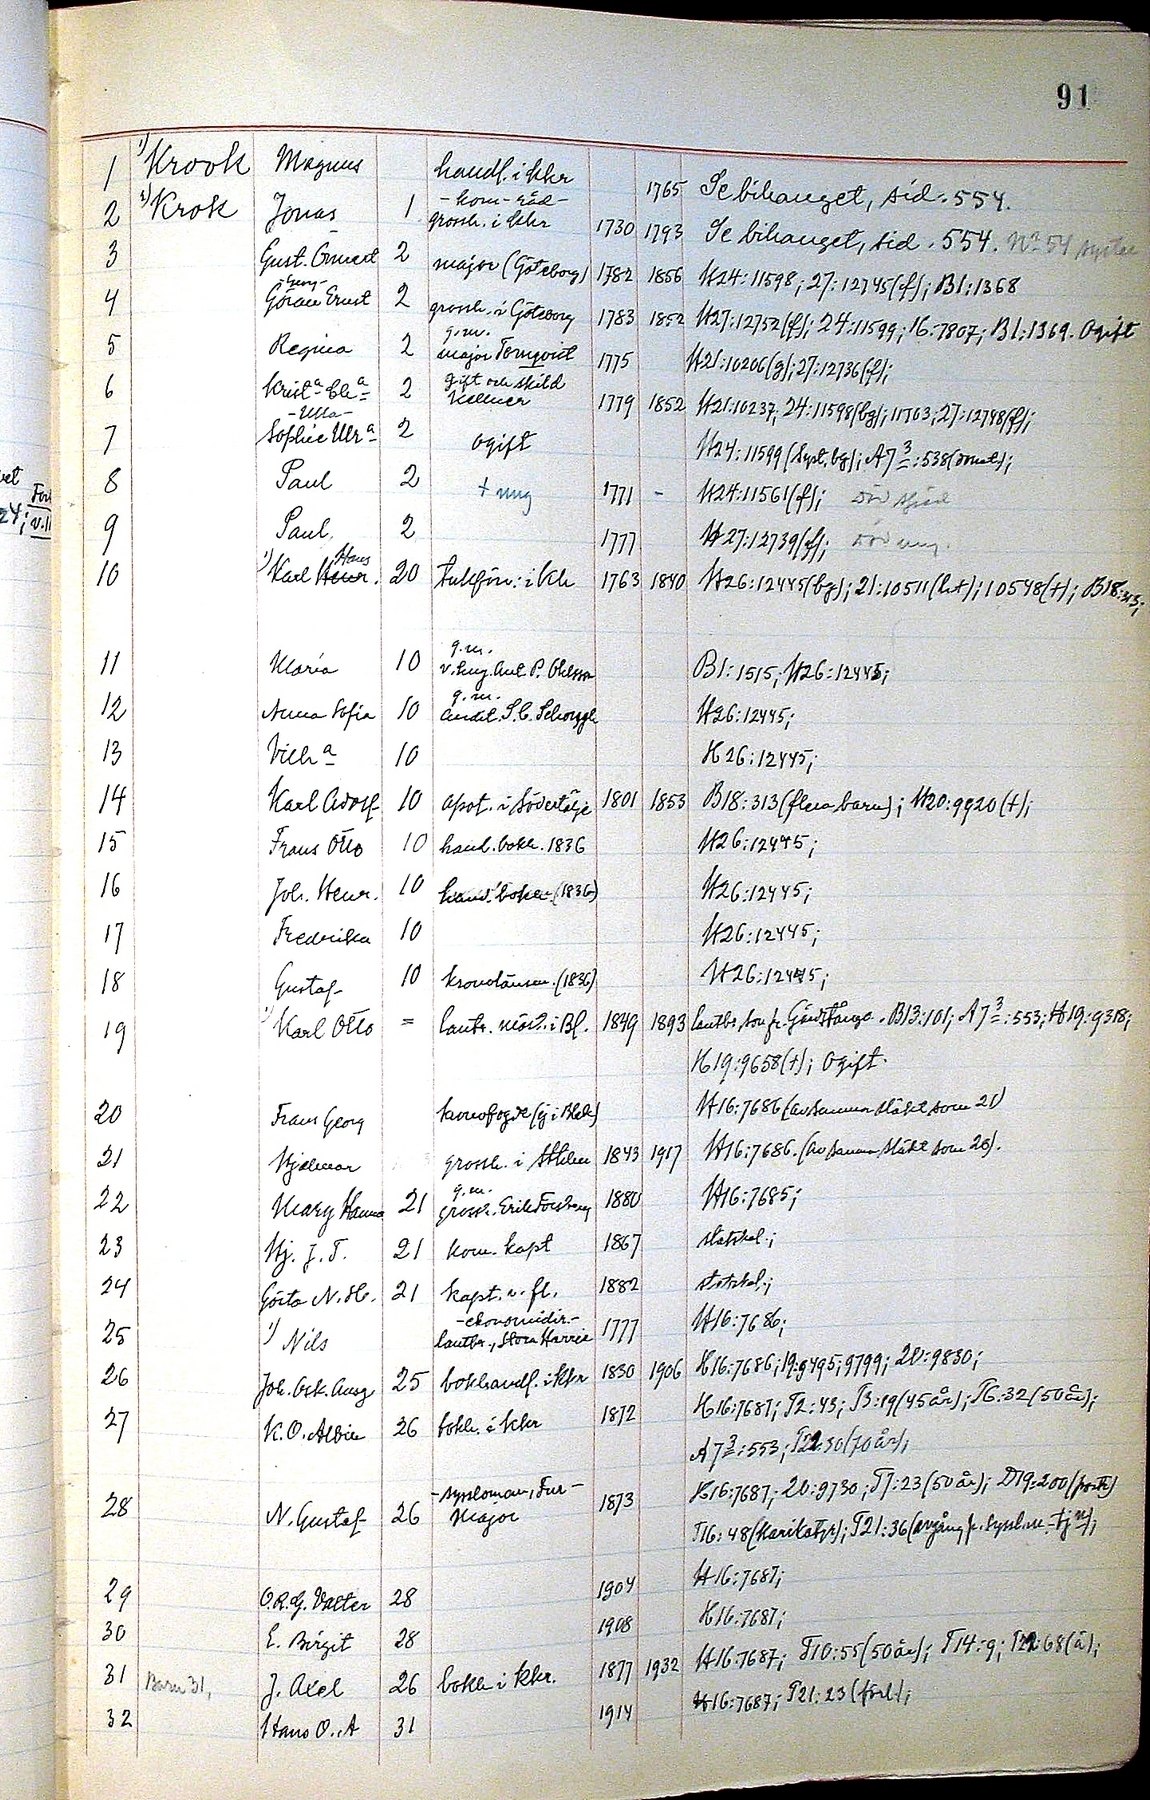 91
1 1) Krook Magnus handl. i Khr 1765 Se bihanget, sid. 554.
2 2) Krok Jonas 1 - kom-råd - grossh. i Khr 1730 1793 Se bihanget, sid. 554. No 54
3 Gust. 2 major (Göteborg) 1782 1856 H24:11598; 27:12745(f); B1:1368
4 - Georg - Göran Ernst 2 grossh. i Göteborg 1783 1852 H27:12752(f); 24:11599; 16:7807; B1:1369. Ogift
5 Regina 2 g.m. major Tornqvist 1775 H21:10206(g); 27:12736(f);
6 Krist.a 2 gift och skild Kellner 1779 1852 H21:10237; 24:11598(bg); 11703; 27:12748(f);
7 - Ulla - Sophie Ulr.a 2 ogift H24:11599 (syst. bg); A7 3:538
8 Paul 2 + ung 1771 - H24:11561(f); död
9 Paul. 2 1777 H27:12739(f); död ung.
10 1) Karl Hans Henr. 20 tullförv. i Kh 1763 1840 H26:12445(bg); 21:10511; 10548(+); B18:313;
11 Maria 10 g.m. P. Ohlsson B1:1515; H26:12445;
12 Anna Sofia 10 g.m. H26:12445;
13 Vilh.a 10 H26:12445;
14 Karl Adolf 10 apot. i Södertälje 1801 1853 B18:313 (flera barn); H20:9920(+);
15 Frans Otto 10 hand. bokh. 1836 H26:12445;
16 Joh. Henr. 10 hand. bokh. (1836) H26:12445;
17 Fredrika 10 H26:12445;
18 Gustaf 10 kronolänsm. (1836) H26:12445;
19 1) Karl Otto = lantbr. i Bl. 1849 1893 lantbr. son fr. B13:101; A7 3:553; H19:9318;
H19:9658(+); Ogift.
20 Frans Georg kronofogde (ej i Blek) H16:7686 (av samma släkt som 21)
21 Hjalmar grossh. i Sthlm 1843 1917 H16:7686. (av samma släkt som 20).
22 Mary Hanna 21 g.m. grossh. Erik Forsberg 1880 H16:7685;
23 Hj. J. T. 21 kom. kapt 1867 statskal.;
24 Gösta N. H. 21 kapt. v. fl. 1882 statskal.;
25 1) Nils - ekonomidir. - lantbr., Stora Harrie 1777 H16:7686;
26 Joh. Osk. Aug 25 bokhandl. i Khr 1830 1906 H16:7686; 19:9495; 9799; 20:9830;
27 K. O. Albin 26 bokh. i Khr 1872 H16:7687; T2:43; T3:19 (45 år); T6:32 (50 år);
A7 3:553; T22:30 (70 år);
28 N. Gustaf 26 - syssloman, Fur - Major 1873 H16:7687; 20:9730; T7:23 (50 år); D19:200 (portr)
T16:48 (karikatyr); T21:36 (avgång fr. syssl.m. tj.n);
29 O.R.G. Valter 28 1904 H16:7687;
30 E. Birgit 28 1908 H16:7687;
31 Barn 31, J. Axel 26 bokh i Khr. 1877 1932 H16:7687; T10:55 (50 år); T14:9; T22:68 (å);
32 Hans O. A 31 1914 H16:7687; T21:23 (förl);